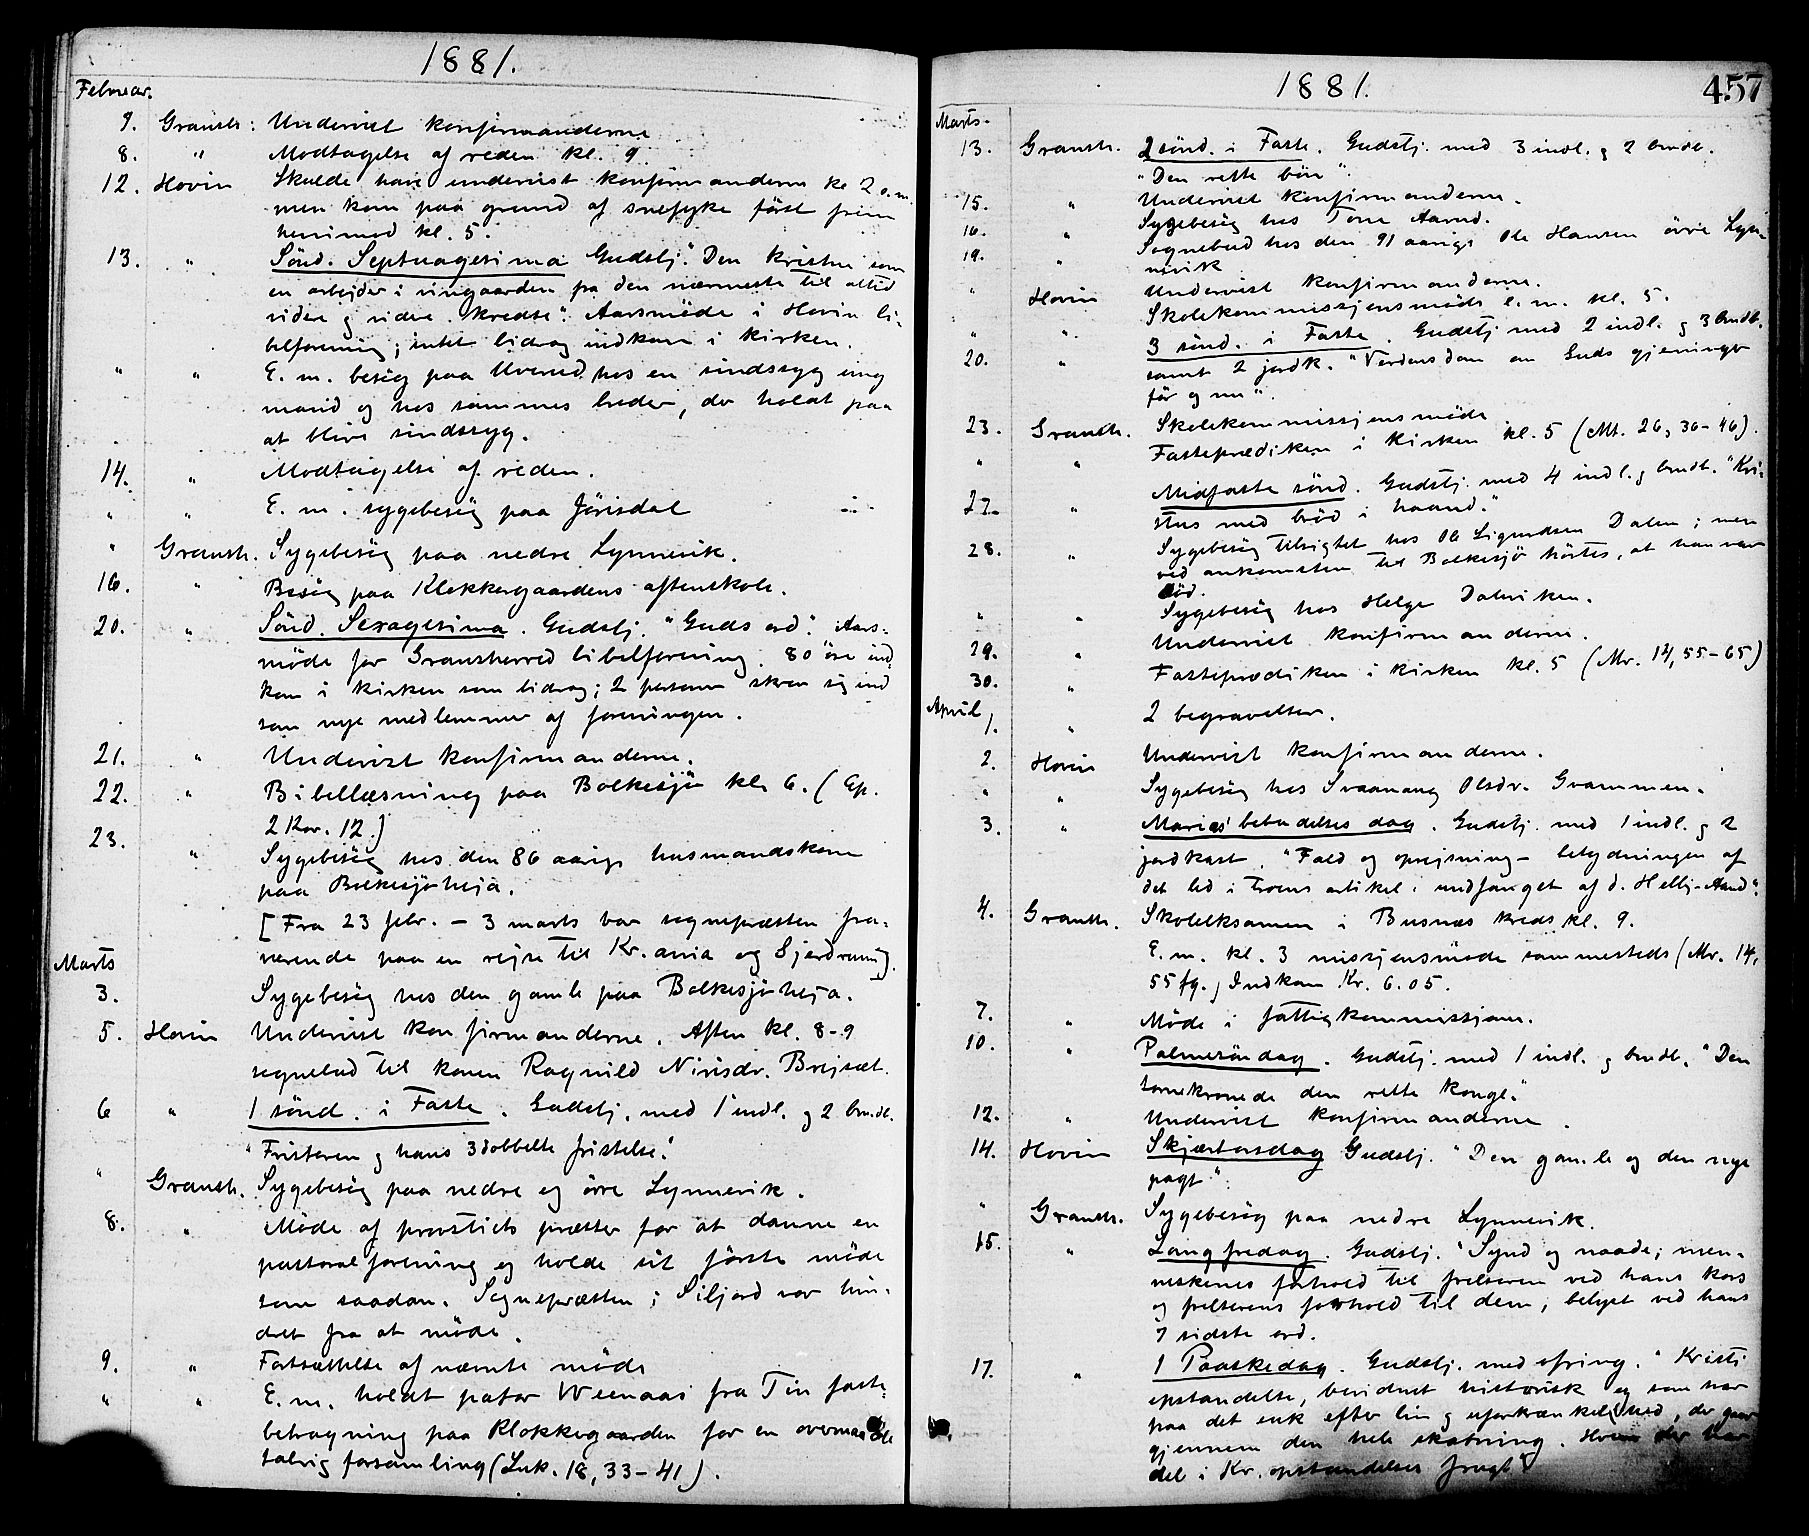 1881.
Februar.
7. Gransh: Undervist konfirmanderne
8. " Modtagelse af reden kl. 9.
12. Hovin Skulde have undervist konfirmanderne kl 2 e.m.
men kom paa grund af snefyke först frem
henimod kl. 5.
13. " Sönd. Septuagesima Gudstj. "Den kristne som
en arbejder i vingaarden fra den nærmeste til altid
videre g videre kredse". Aarsmöde i Hovin bi-
belforening; intet bidrag indkom i kirken.
" " E. m. besög paa Uverud hos en sindssyg ung
mand og hos sammes broder, der holdt paa
at blive sindssyg.
14. " Modtagelse af reden.
" " E. m. sygebesög paa Jörisdal
" Gransh. Sygebesög paa nedre Lynnevik.
16. " Besög paa Klokkergaardens aftenskole.
20. " Sönd. Sexagesima. Gudstj. "Guds ord". Aars-
möde for Gransherred bibelforening. 80 öre ind
kom i kirken som bidrag; 2 personer skrev sig ind
som nye medlemmer af foreningen.
21. " Undervist konfirmanderne.
22. " Bibellæsning paa Bolkesjö kl. 6. (Ep.
2 Kor. 12.)
23. " Sygebesög hos den 86 aarige husmandskone
paa Bolkesjöheja.
[Fra 23 febr. - 3 marts var sognepræsten fra-
værende paa en rejse til Kr.ania og Gjerdrum].
Marts
3. Sygebesög hos den gamle paa Bolkesjöheja.
5. Hovin Undervist konfirmanderne. Aften kl. 8-9
sognebud til konen Ragnild Nirisdr. Brejset.
6 " 1 sönd. i Faste. Gudstj. med 1 indl. og 2 brudt.
"Fristeren g hans 3dobbelte fristelse".
" Gransh. Sygebesög paa nedre og övre Lynnevik.
8. " Möde af provstiets præster for at danne en
pastoralforening og holde sit förste möde
som saadan. Sognepræsten i Siljord var hin-
dret fra at möde.
9. " Fortsættelse af nævnte möde
" " E. m. holdt pastor Weenaas fra Tin faste-
betragning paa Klokkergaarden for en overmaade
talrig forsamling (Luk. 18, 33-41).
1881.
457
Marts.
13. Gransh. 2 sönd. i Faste. Gudstj. med 3 indl. g 2 brudt.
"Den rette bön".
15. " Undervist konfirmanderne.
16. " Sygebesög hos Tone Aarud.
19. " Sognebud hos den 91 aarige Ole Hansen övre Lyn-
nevik
" Hovin Undervist konfirmanderne.
" " Skolekommissjonsmöde e.m. kl. 5.
20. " 3 sönd. i Faste. Gudstj med 2 indl. g 3 brudt.
samt 2 jordk. "Verdens dom om Guds gjerninger
för og nu".
23. Gransh. Skolekommissjonsmöde
" " Fasteprædiken i kirken kl. 5 (Mt. 26, 36-46).
27. " Midfaste sönd. Gudstj. med 4 indl. g brudt. "Kri-
stus med bröd i haand."
28. " Sygebesög tilsigtet hos Ole Sigurdsen Dalen; men
ved ankomsten til Bolkesjö hörtes, at han var
död.
" " Sygebesög hos Helge Dalviken.
29. " Undervist konfirmanderne.
30. " Fasteprædiken i kirken kl. 5 (Mr. 14, 55-65)
April
1. " 2 begravelser.
2. Hovin Undervist konfirmanderne.
" " Sygebesög hos Svaanaug Olsdr. Grammen.
3. " Marias bebudelses dag. Gudstj. med 1 indl. g 2
jordkast. "Fald og oprejsning - betydningen af
det led i troens artikel: undfanget af d. Hellig-Aand".
4. Gransh. Skoleeksamen i Busnes kreds kl. 9.
E.m. kl. 3 missjonsmöde sammesteds (Mr. 14,
55 fg.) Indkom Kr. 6.05.
7. " Möde i fattigkommissjonen.
10. " Palmesöndag. Gudstj. med 1 indl. g brudt. "Den
tornekronede den rette konge".
12. " Undervist konfirmanderne.
14. Hovin Skjærtorsdag Gudstj. "Den gamle og den nye
pagt".
" Gransh. Sygebesög paa nedre Lynnevik.
15. " Langfredag. Gudstj. "Synd og naade; men-
neskenes forhold til frelseren ved hans kors
og frelserens forhold til dem, belyst ved hans
7 sidste ord.
17. " 1 Paaskedag. Gudstj. med ofring. "Kristi
opstandelse, bevidnet historisk og som svar
paa det suk efter liv g uforkrænkelighed, der gaar
gjennem den hele skabning. Hvem der har
del i Kr. opstandelses frugt"